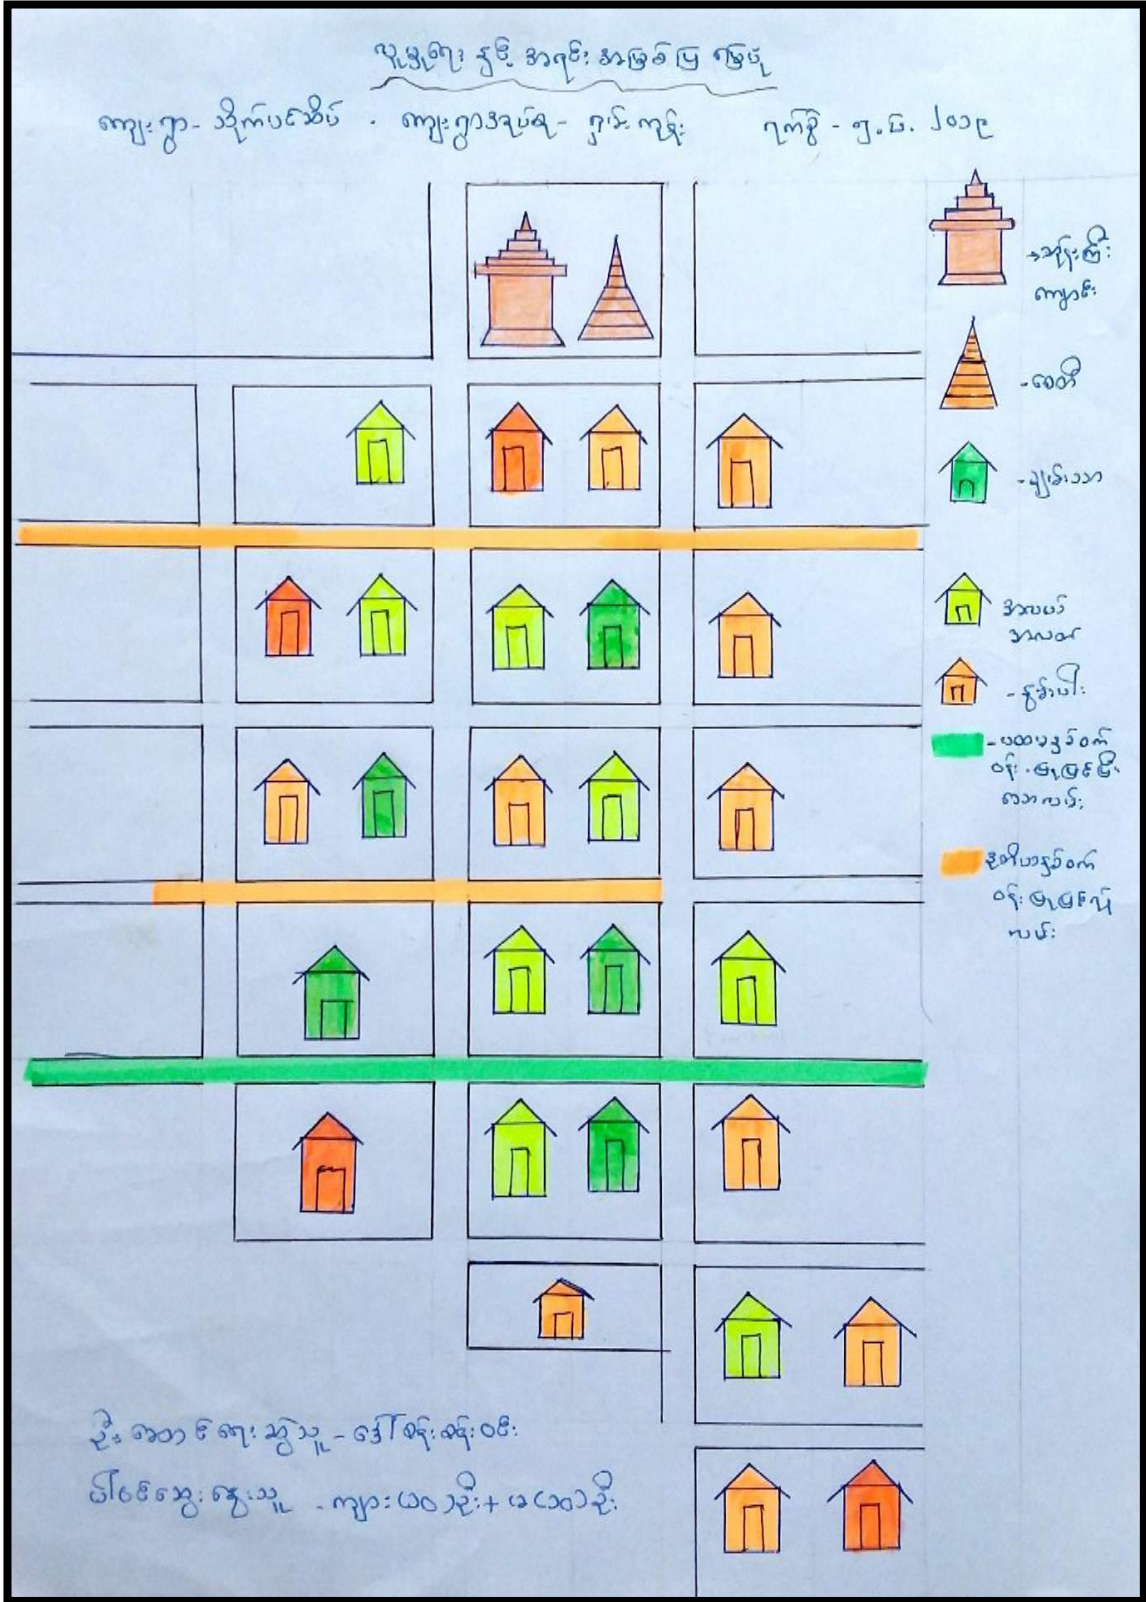 လူမှုရေး နှင့် အရင်းအမြစ်ပြ မြေပုံ
ကျေးရွာ - အိုက်ပင်ဆိပ် . ကျေးရွာအုပ်စု - ရှမ်းကုန်း ရက်စွဲ - ၅.၆.၂၀၁၉
- ဘုန်းကြီး
ကျောင်း
- စေတီ
- ချမ်းသာ
အလယ်
အလတ်
- နွမ်းပါး
- ပထမနှစ်ဝက်
ဝန်းမှပြုပြင်ပြီး
သောလမ်း
ဒုတိယနှစ်ဝက်
ဝန်းမှပြုပြင်လို
လမ်း
ဦးဆောင်ရေးဆွဲသူ - ဒေါ်စန်းစန်းဝင်း
ပါဝင်ဆွေးနွေးသူ - ကျား (၂၀) ဦး + မ (၁၀) ဦး